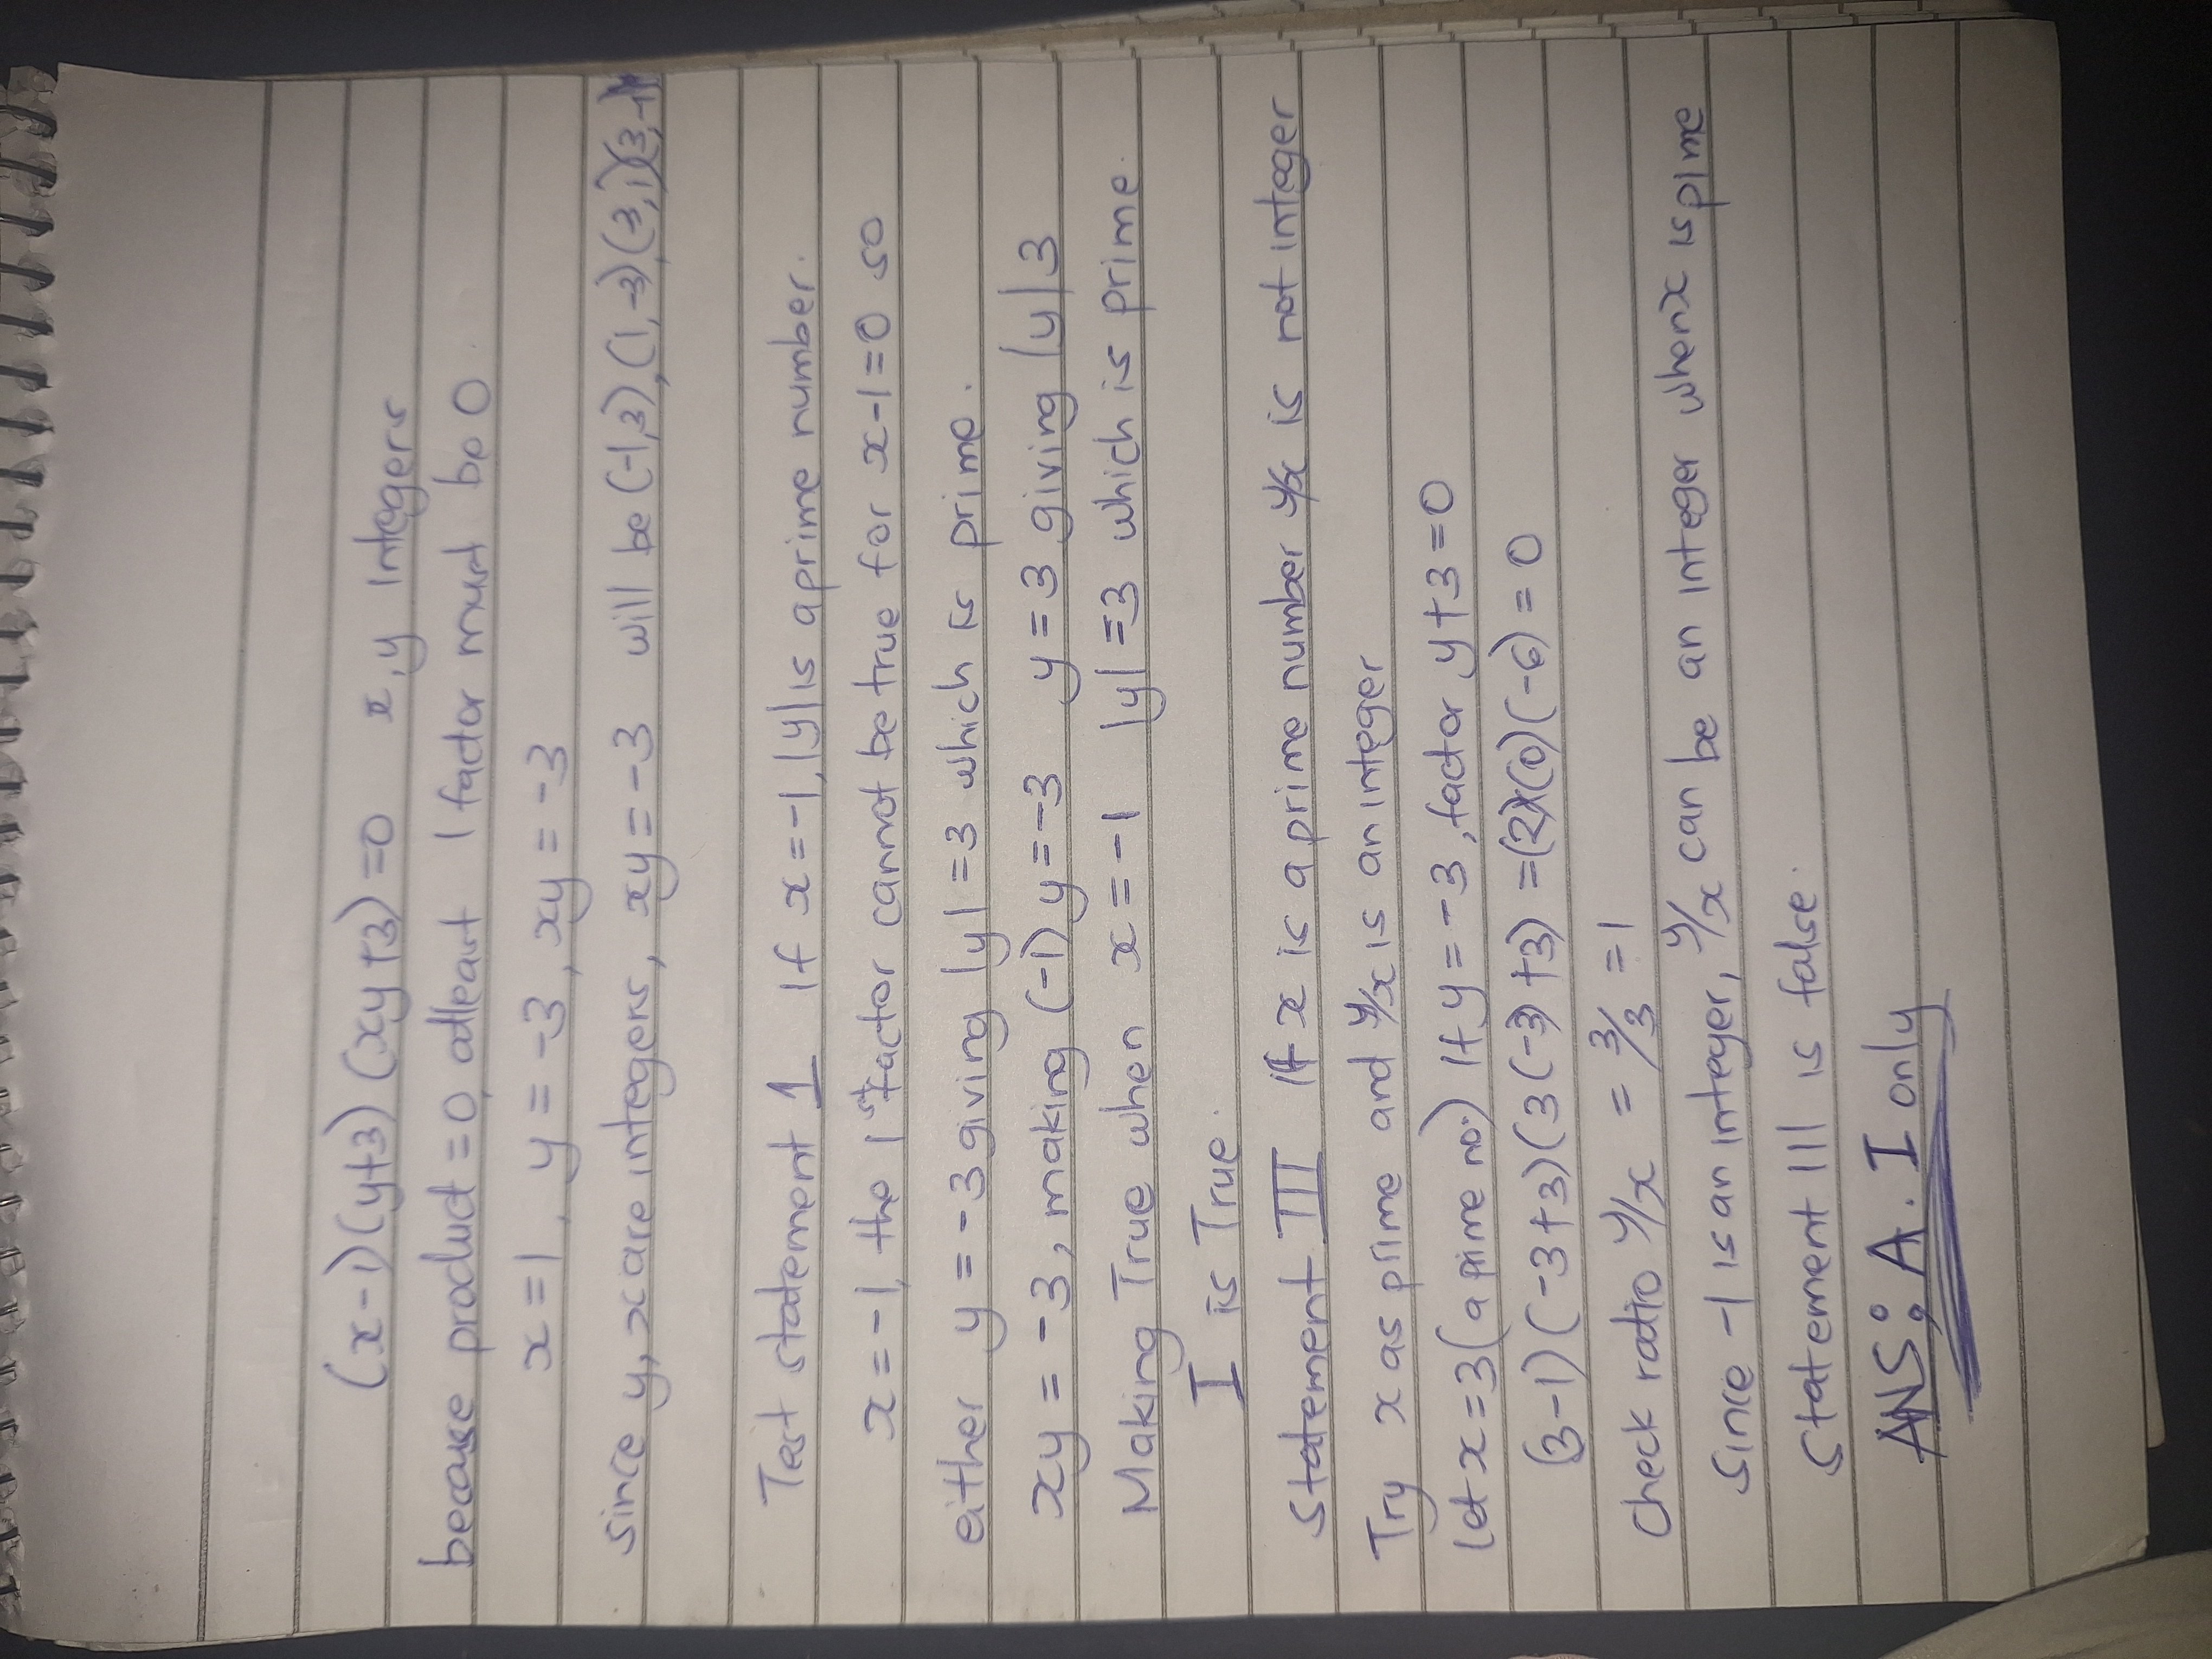 (x-1)(y+3)(xy+3)=0 x,y integers
because product=0, atleast 1 factor must be 0.
x=1, y=-3, xy=-3
since y,x are integers, xy=-3 will be (-1,3),(1,-3)(3,1)(3,-1)
Test statement 1 If x=-1, |y| is a prime number.
x=-1, the 1st factor cannot be true for x-1=0 so
either y=-3 giving |y|=3 which is prime.
xy=-3, making (-1)y=-3 y=3 giving |y|3
Making True when x=-1 |y|=3 which is prime.
I is True.
statement III if x is a prime number y/x is not integer
Try x as prime and y/x is an integer
Let x=3(a prime no.) If y=-3, factor y+3=0
(3-1)(-3+3)(3(-3)+3)=(2)(0)(-6)=0
Check ratio y/x = 3/3 =1
Since -1 is an integer, y/x can be an integer when x is prime
Statement III is false.
ANS: A. I only